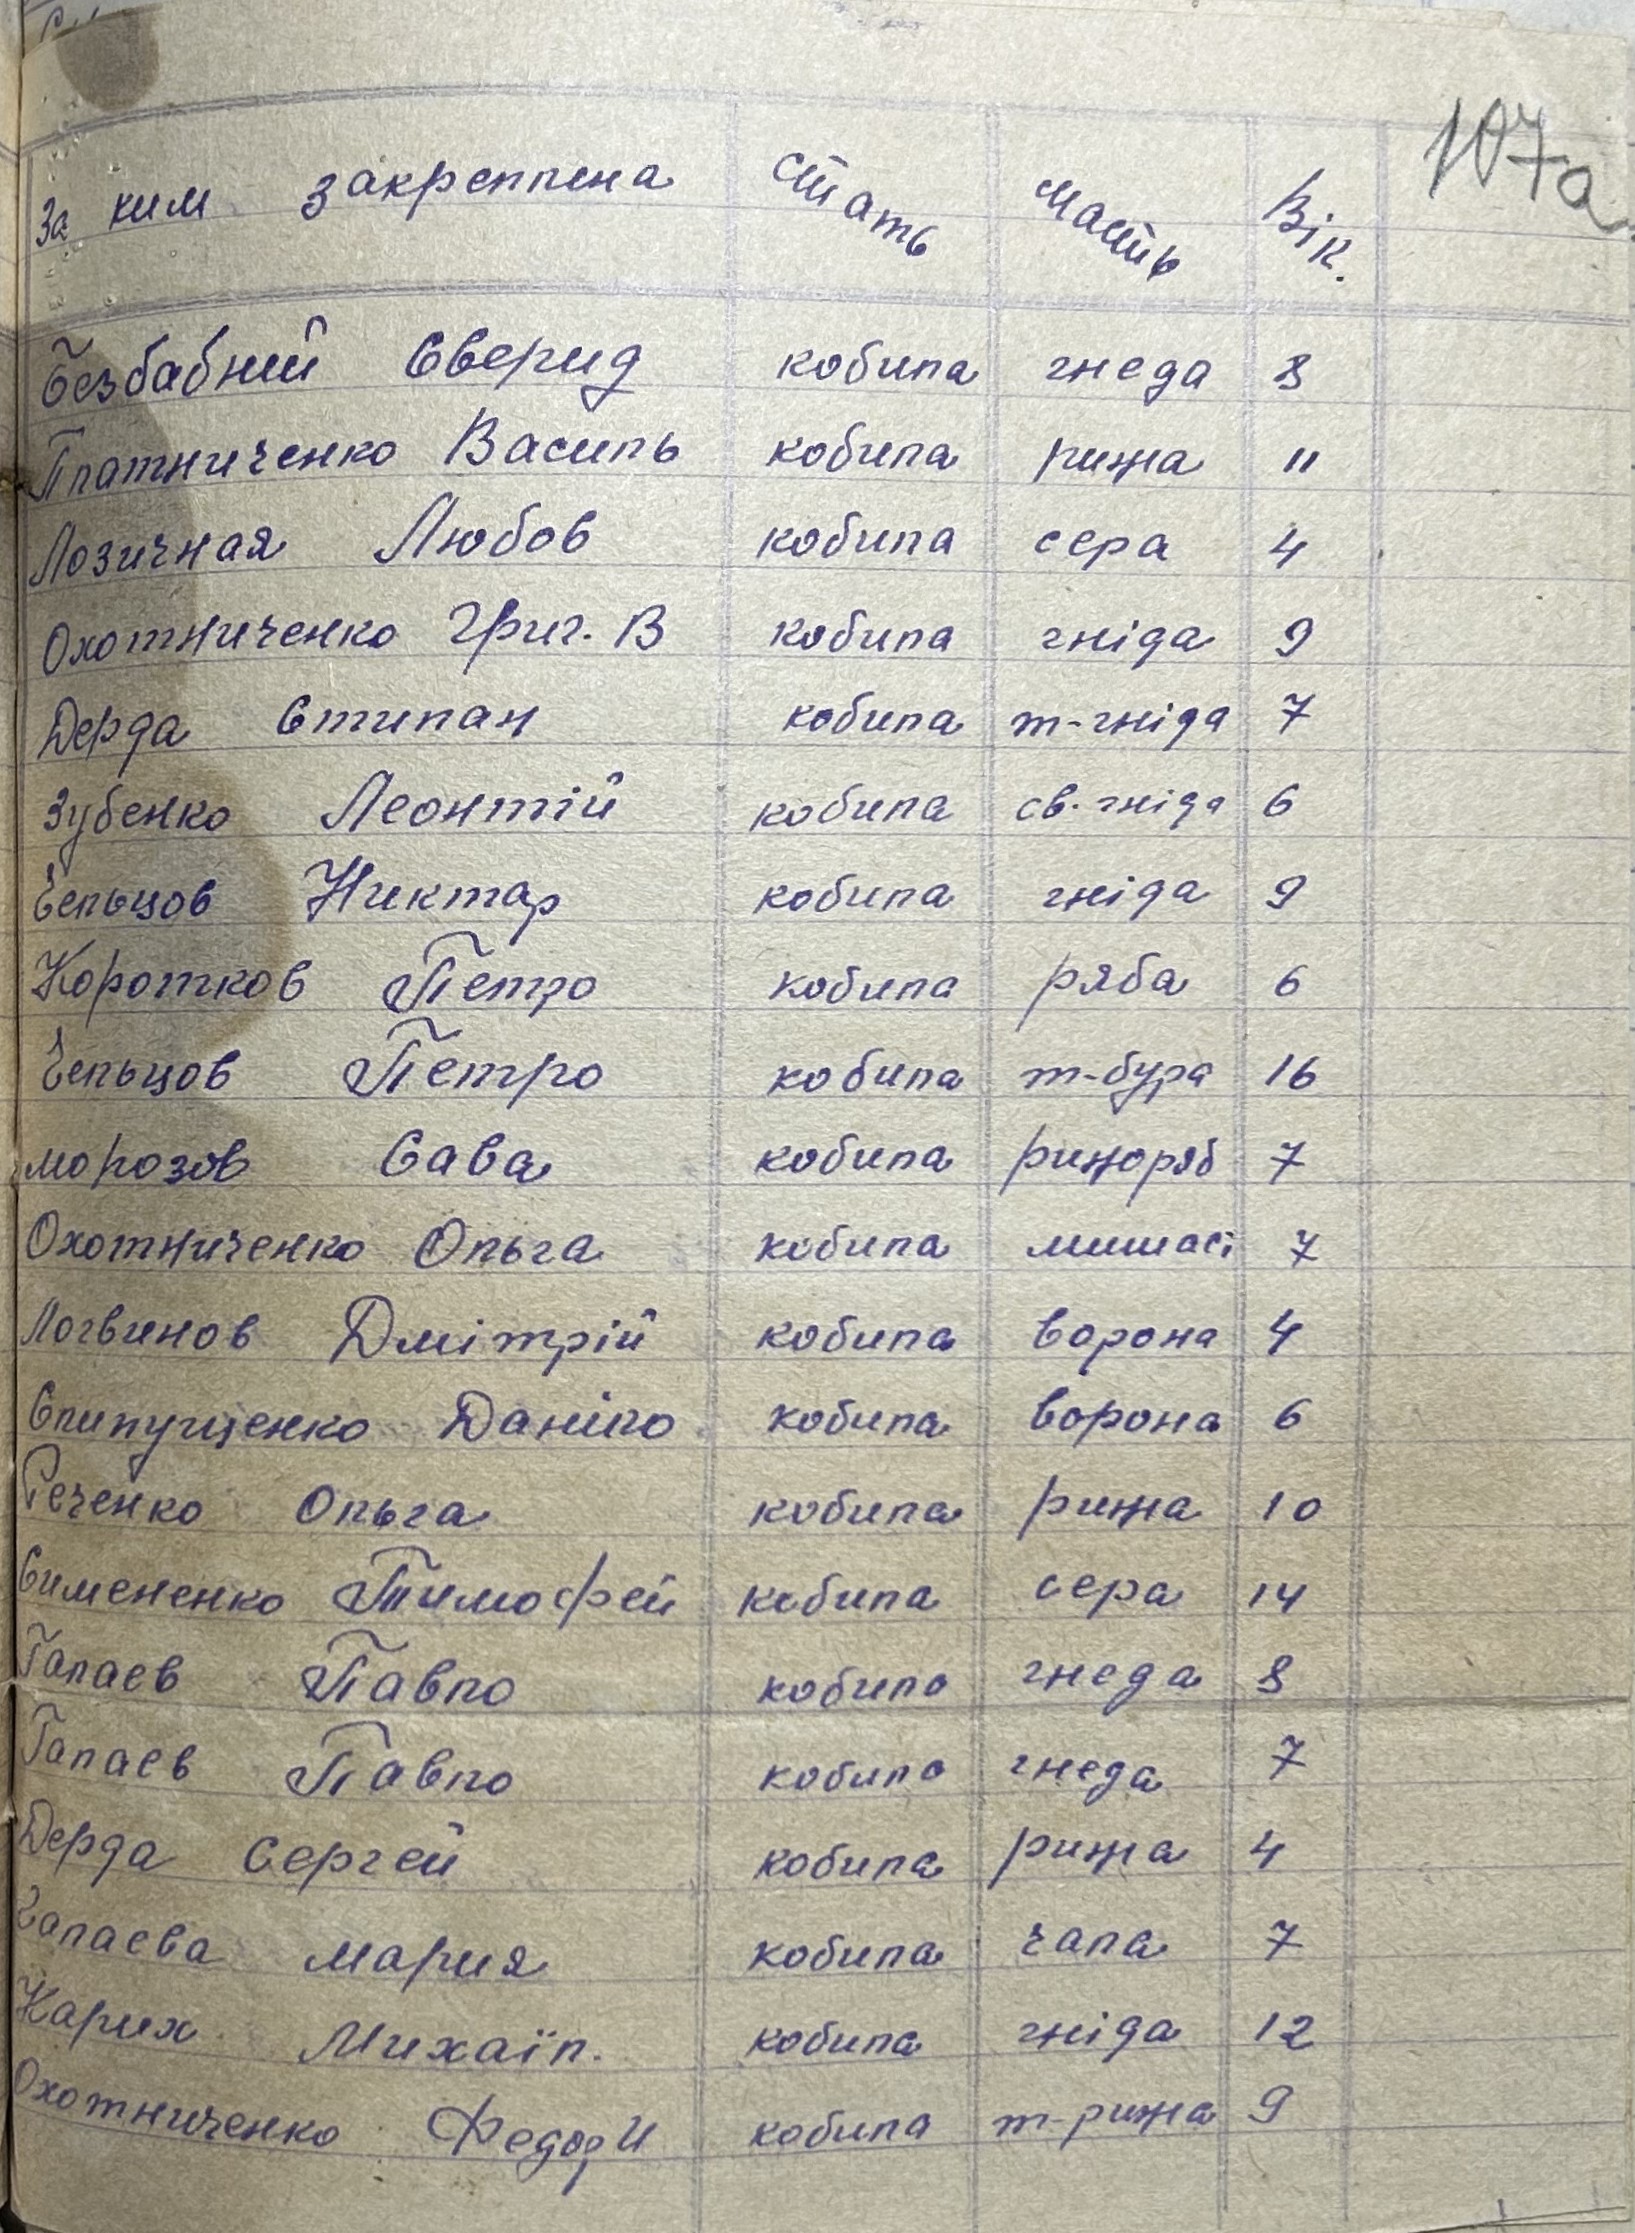 107а
За ким закреплена Стать Масть Вік.
Безбабний Сверид кобила гнеда 8
Платниченко Василь кобила рижа 11
Лозичная Любов кобила сера 4
Охотниченко Григ. В кобила гніда 9
Дерда Стипан кобила т-гніда 7
Зубенко Леонтій кобила св. гніда 6
Ельцов Никтар кобила гніда 9
Коротков Петро кобила ряба 6
Ельцов Петро кобила т-бура 16
Морозов Сава кобила рижоряб 7
Охотниченко Ольга кобила мишасі 7
Логвинов Дмітрій кобила ворона 4
Слипущенко Даніло кобила ворона 6
Реченко Ольга кобила рижа 10
Симененко Тимофей кобила сера 14
Галаев Павло кобила гнеда 8
Галаев Павло кобила гнеда 7
Дерда Сергей кобила рижа 4
Галаева Мария кобила чала 7
Карих Михаїл. кобила гніда 12
Охотниченко Федор И кобила т-рижа 9